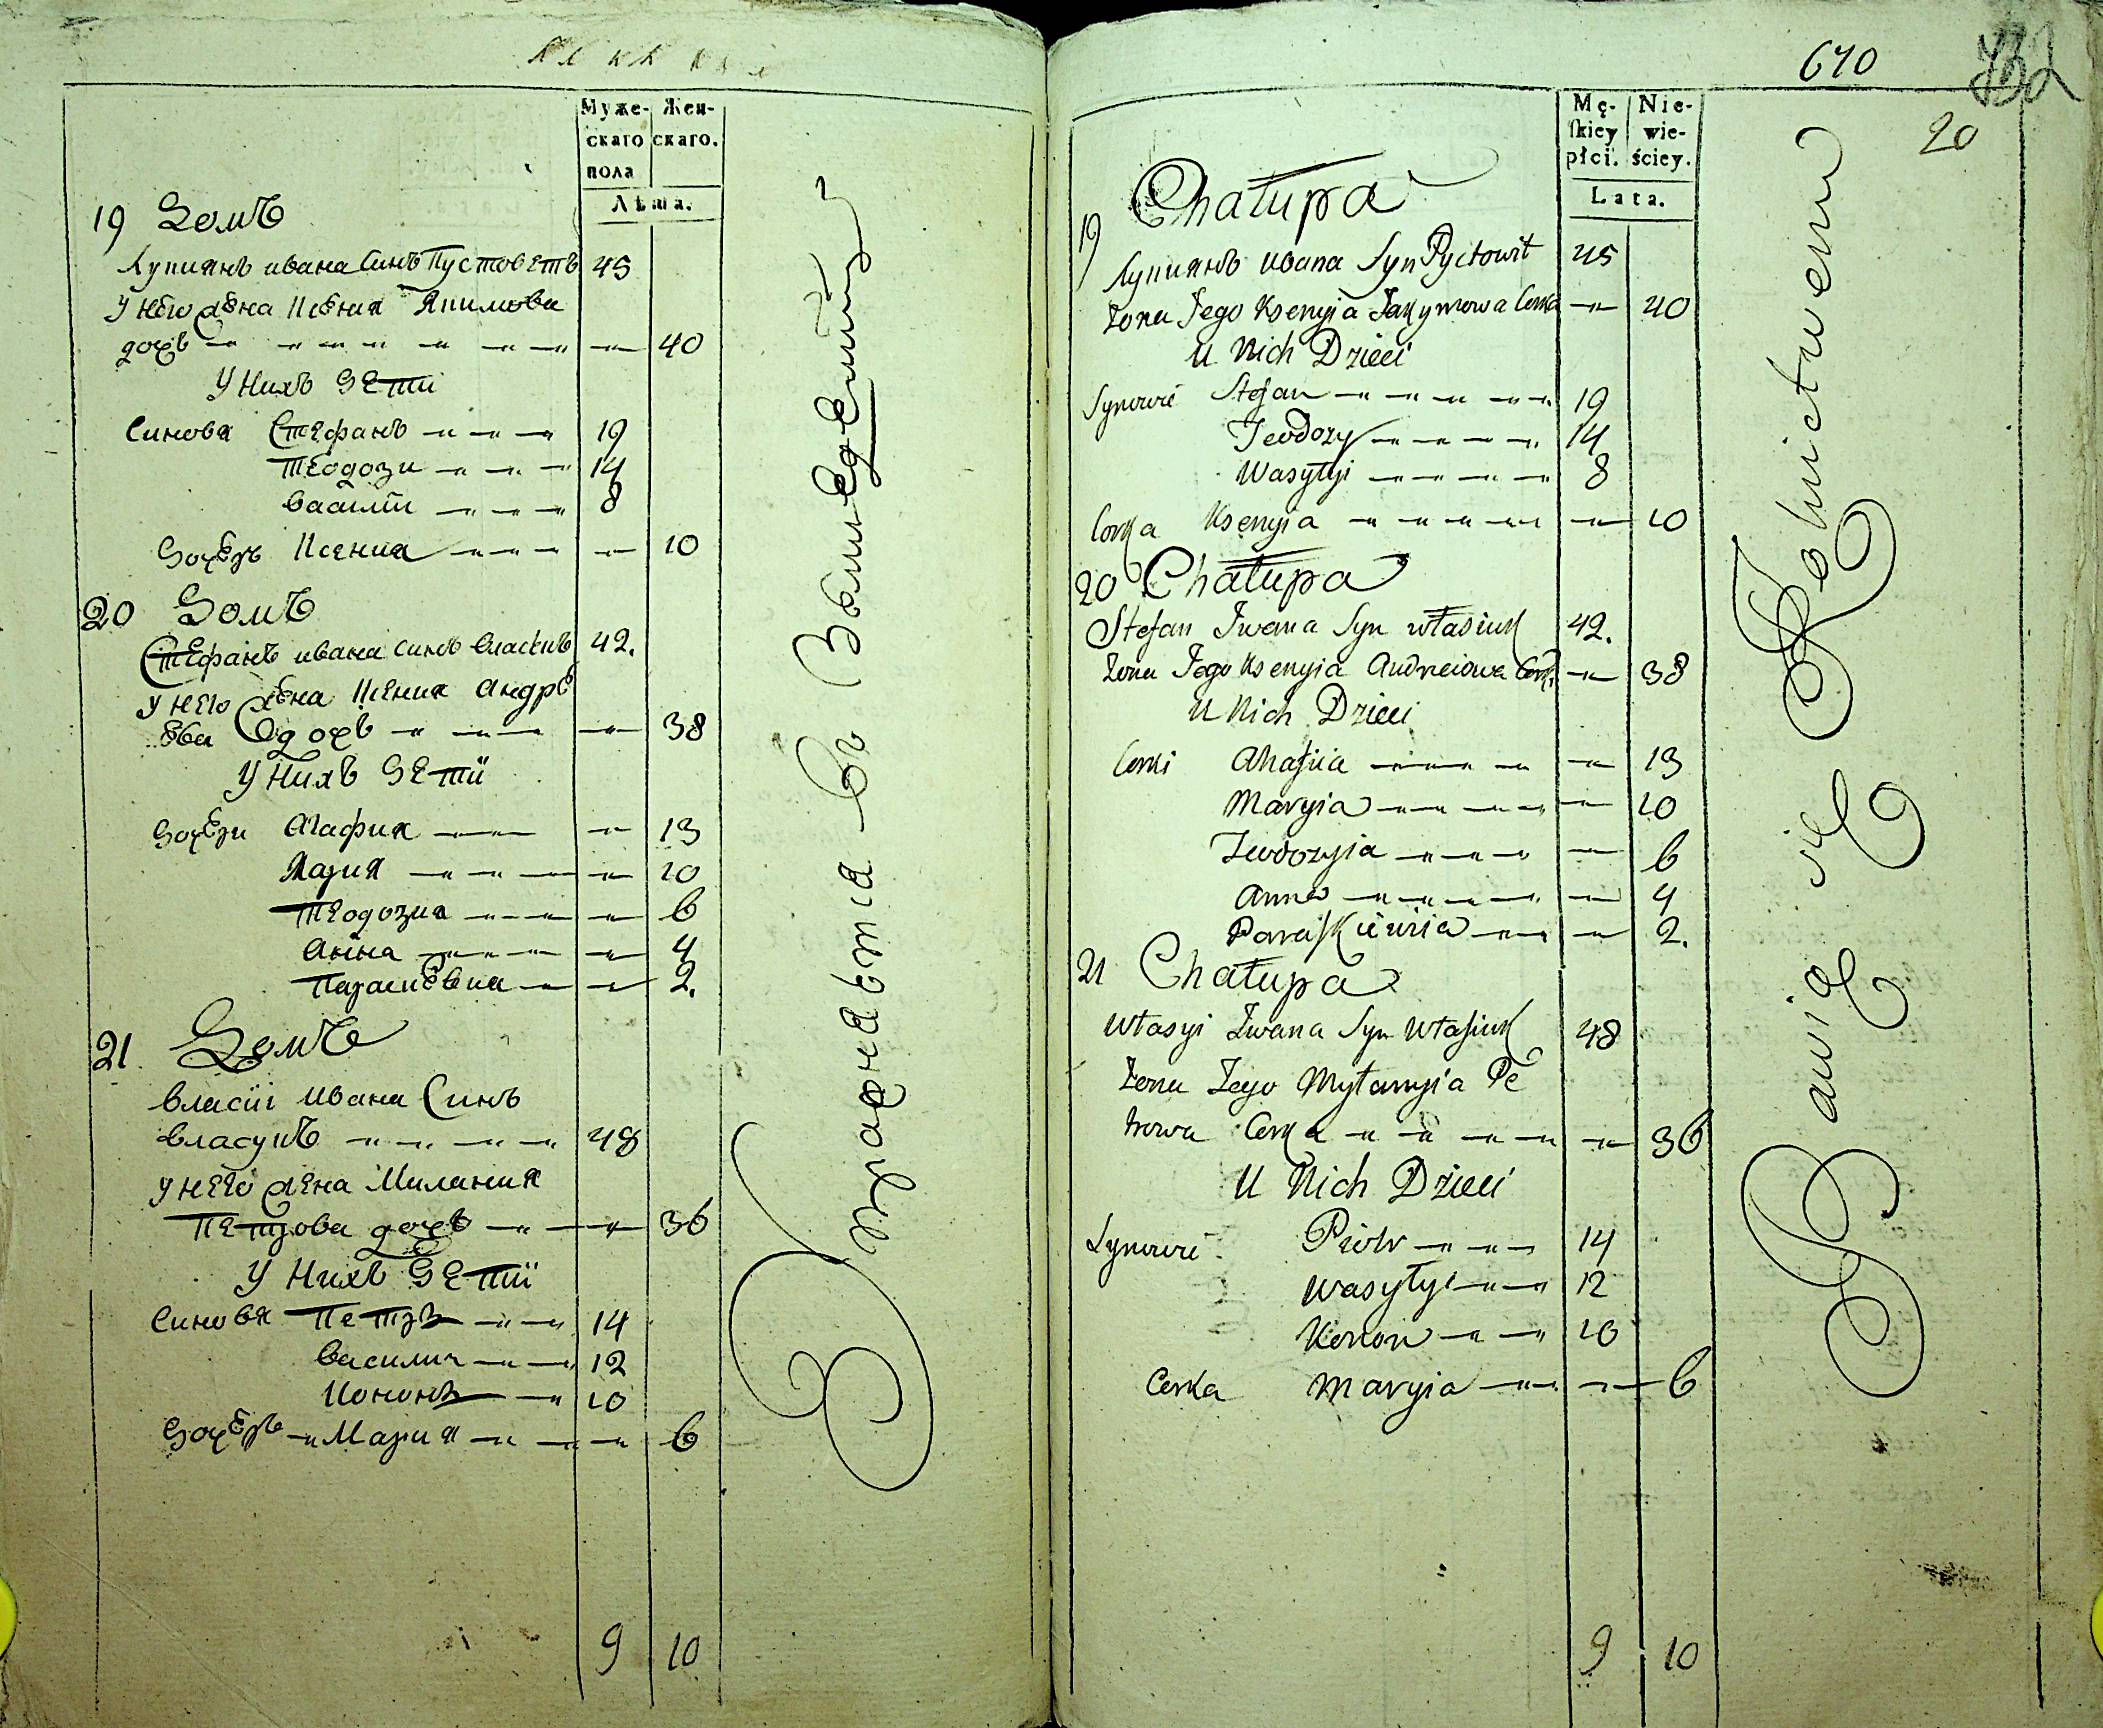 Муже-
скаго
пола
Жен-
скаго.
Лѣта.
19 Домъ
Лупиянъ ивана Синъ Пустоветъ 45
у него жена Ксения Якимова
дочь 40
У Нихъ Дети
Синовя Стефанъ 19
Теодози 14
Василїи 8
Дочеръ Ксения 10
20 Домъ
Стефанъ ивана синъ Власюкъ 42.
у него жена Ксения Андре
ева дочь 38
У Нихъ Детїи
Дочери Агафия 13
Мария 10
Теодозиа 6
Анна 4
Параскевиа 2.
21 Домъ
Власїи Ивана Синъ
Власукъ 48
у него жена Милания
Петрова дочь 36
У Нихъ Детїи
Синовя Петръ 14
Василии 12
Кононъ 10
Дочеръ Мария 6
9 10
въ
670
20
Mę-
skiey
płci.
Nie-
wie-
ściey.
Lata.
19 Chałupa
Лупиянъ Ивана Syn Pustowit 45
Żona Jego Ksenyia Jakymowa Corka 40
U Nich Dzieci
Synowie Stefan 19
Teodozy 14
Wasylyi 8
Corka Ksenyia 10
20 Chałupa
Stefan Iwana Syn Własiuk 42.
Żona Jego Ksenyia Andreiowa Cork. 38
U Nich Dzieci
Corki Ahafiia 13
Maryia 10
Teodozyia 6
Anna 4
Paraskiewia 2.
21 Chałupa
Własyi Iwana Syn Własiuk 48
Żona Jego Myłanyia Pe
trowa Corka 36
U Nich Dzieci
Synowie Piotr 14
Wasylyi 12
Konon 10
Corka Maryia 6
9 10